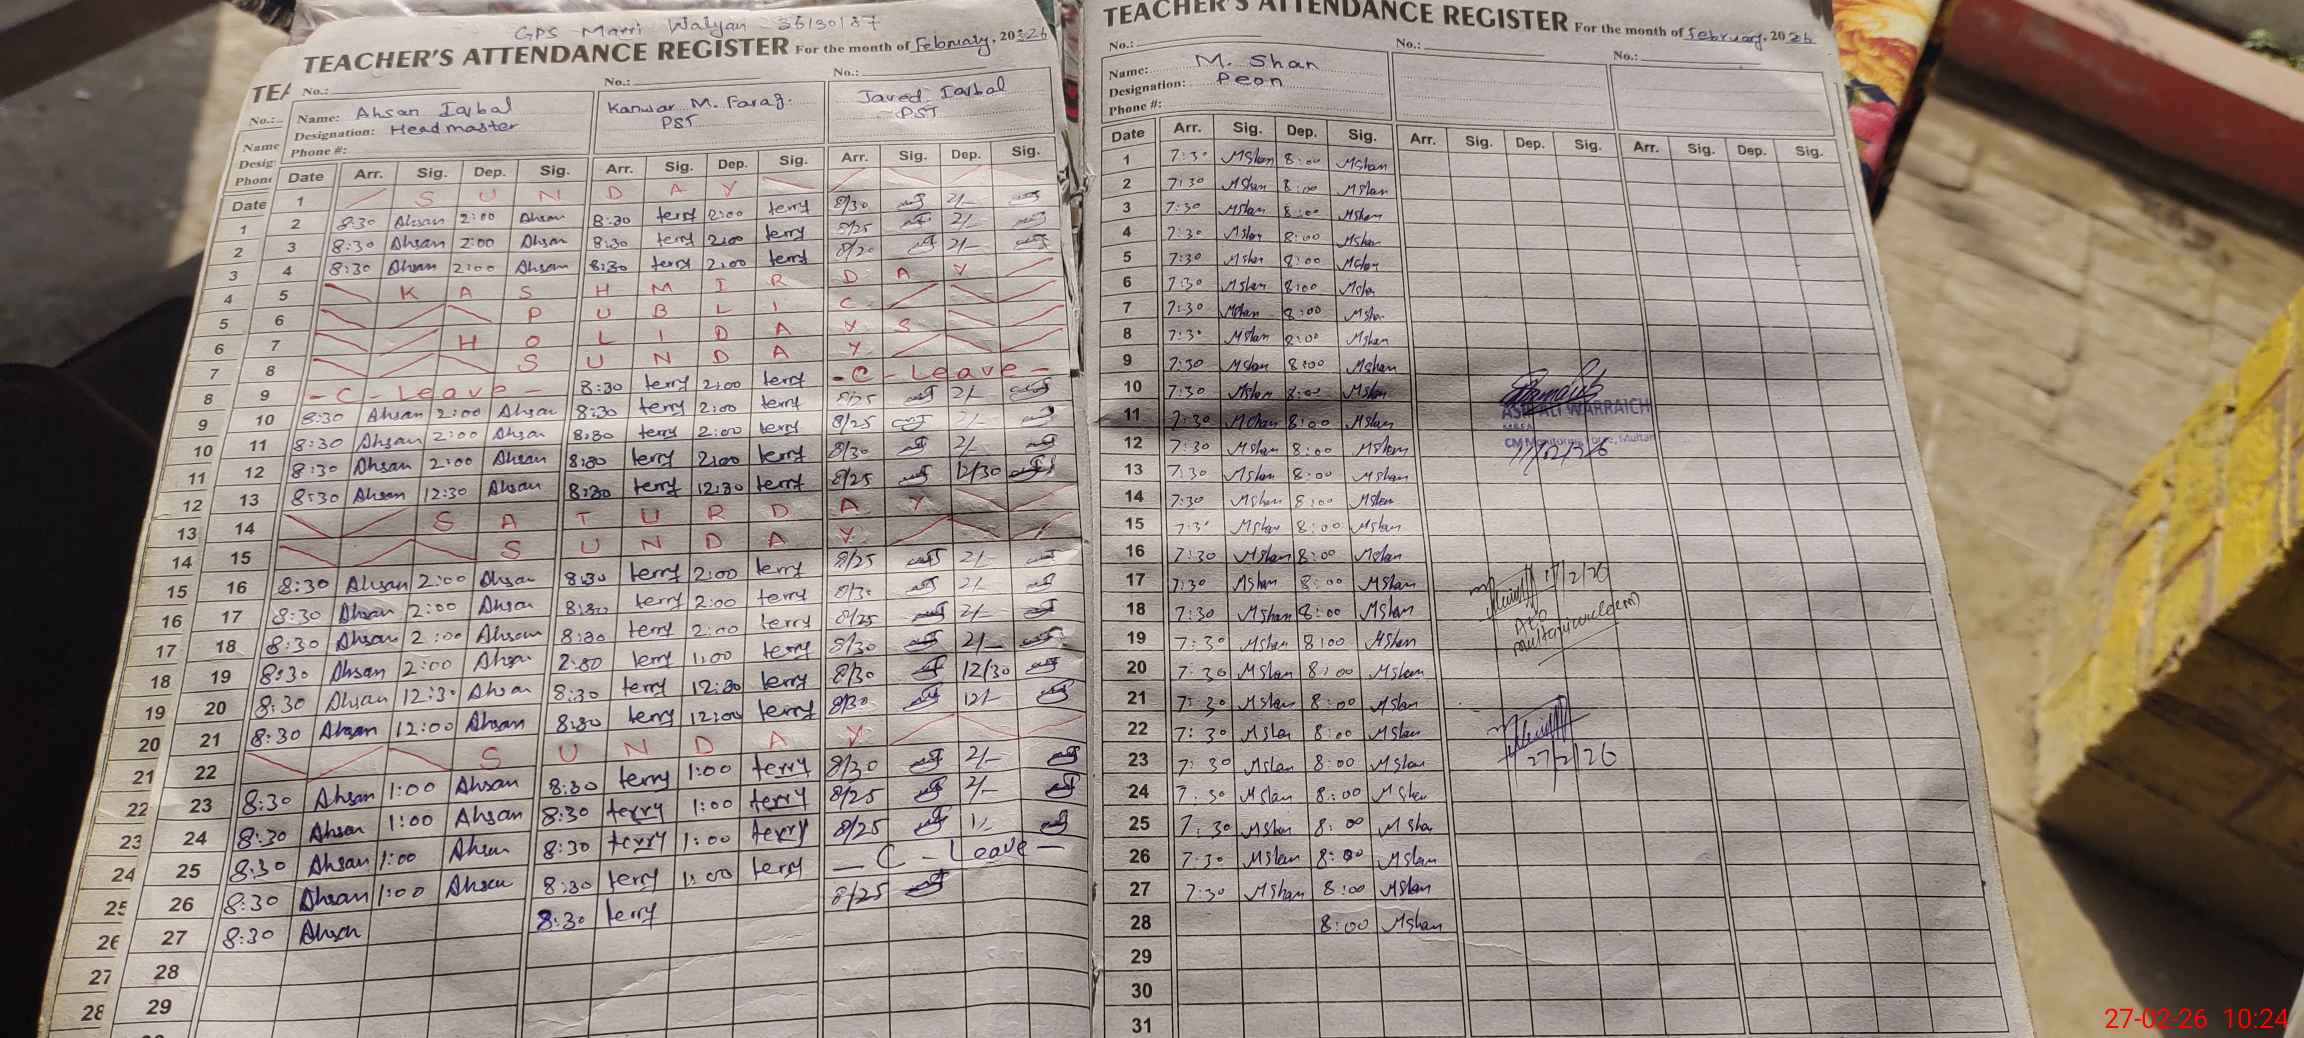 GPS Marri Walyan 36130187
TEACHER'S ATTENDANCE REGISTER For the month of February, 2026
No.: No.: No.:
Name: Ahsan Iqbal Kanwar M. Faraz. Javed Iqbal
Designation: Headmaster PST PST
Phone #:
Date Arr. Sig. Dep. Sig. Arr. Sig. Dep. Sig. Arr. Sig. Dep. Sig.
1 S U N D A Y
2 8:30 Ahsan 2:00 Ahsan 8:30 terry 2:00 terry 8/30 2/-
3 8:30 Ahsan 2:00 Ahsan 8:30 terry 2:00 terry 8/25 2/-
4 8:30 Ahsan 2:00 Ahsan 8:30 terry 2:00 terry 8/20 2/-
5 K A S H M I R D A Y
6 P U B L I C
7 H O L I D A Y S
8 S U N D A Y
9 - C - Leave - 8:30 terry 2:00 terry - C - Leave -
10 8:30 Ahsan 2:00 Ahsan 8:30 terry 2:00 terry 8/25 2/-
11 8:30 Ahsan 2:00 Ahsan 8:30 terry 2:00 terry 8/25 2/-
12 8:30 Ahsan 2:00 Ahsan 8:30 terry 2:00 terry 8/30 2/-
13 8:30 Ahsan 12:30 Ahsan 8:30 terry 12:30 terry 8/25 12/30
14 S A T U R D A Y
15 S U N D A Y
16 8:30 Ahsan 2:00 Ahsan 8:30 terry 2:00 terry 8/25 2/-
17 8:30 Ahsan 2:00 Ahsan 8:30 terry 2:00 terry 8/30 2/-
18 8:30 Ahsan 2:00 Ahsan 8:30 terry 2:00 terry 8/25 2/-
19 8:30 Ahsan 2:00 Ahsan 2:30 terry 1:00 terry 8/30 2/-
20 8:30 Ahsan 12:30 Ahsan 8:30 terry 12:30 terry 8/30 12/30
21 8:30 Ahsan 12:00 Ahsan 8:30 terry 12:00 terry 8/30 12/-
22 S U N D A Y
23 8:30 Ahsan 1:00 Ahsan 8:30 terry 1:00 terry 8/30 2/-
24 8:30 Ahsan 1:00 Ahsan 8:30 terry 1:00 terry 8/25 2/-
25 8:30 Ahsan 1:00 Ahsan 8:30 terry 1:00 terry 8/25 1/-
26 8:30 Ahsan 1:00 Ahsan 8:30 terry 1:00 terry - C - Leave -
27 8:30 Ahsan 8:30 terry 8/25
28
29
TEACHER'S ATTENDANCE REGISTER For the month of February, 2026
No.: No.: No.:
Name: M. Shan
Designation: Peon
Phone #:
Date Arr. Sig. Dep. Sig. Arr. Sig. Dep. Sig. Arr. Sig. Dep. Sig.
1 7:30 MShan 8:00 MShan
2 7:30 MShan 8:00 MShan
3 7:30 MShan 8:00 MShan
4 7:30 MShan 8:00 MShan
5 7:30 MShan 8:00 MShan
6 7:30 MShan 8:00 MShan
7 7:30 MShan 8:00 MShan
8 7:30 MShan 8:00 MShan
9 7:30 MShan 8:00 MShan
10 7:30 MShan 8:00 MShan
11 7:30 MShan 8:00 MShan
ASIF ALI WARRAICH
MEA
CM Monitoring Force, Multan
12 7:30 MShan 8:00 MShan
13 7:30 MShan 8:00 MShan
14 7:30 MShan 8:00 MShan
15 7:30 MShan 8:00 MShan
16 7:30 MShan 8:00 MShan
17 7:30 MShan 8:00 MShan 17/2/26
18 7:30 MShan 8:00 MShan
AEO
19 7:30 MShan 8:00 MShan
20 7:30 MShan 8:00 MShan
21 7:30 MShan 8:00 MShan
22 7:30 MShan 8:00 MShan
23 7:30 MShan 8:00 MShan 27/2/26
24 7:30 MShan 8:00 MShan
25 7:30 MShan 8:00 MShan
26 7:30 MShan 8:00 MShan
27 7:30 MShan 8:00 MShan
28 8:00 MShan
29
30
31
27-02-26 10:24